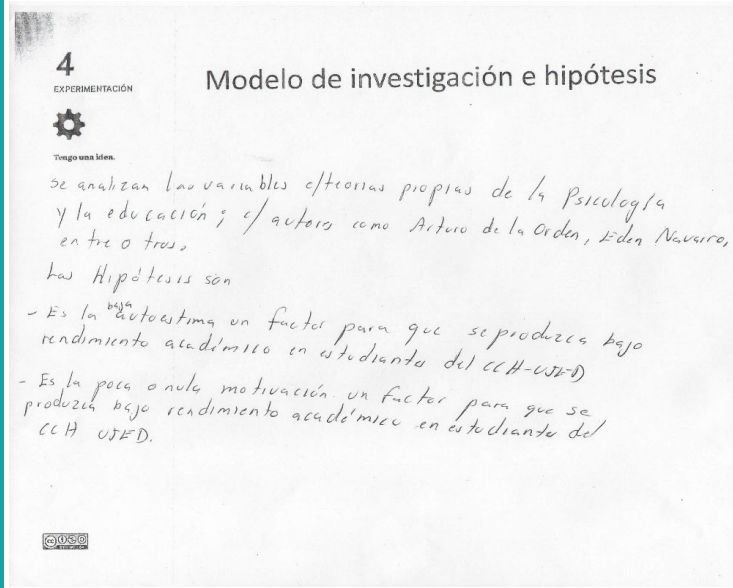 4
EXPERIMENTACIÓN
Modelo de investigación e hipótesis
Tengo una idea.
Se analizan las variables c/teorias propias de la Psicología
y la educación; c/ autores como Arturo de la Orden, Eden Navarro,
entre otros.
Las Hipótesis son
- Es la baja autoestima un factor para que se produzca bajo
rendimiento académico en estudiantes del CCH-UJED
- Es la poca o nula motivación un factor para que se
produzca bajo rendimiento académico en estudiantes del
CCH UJED.